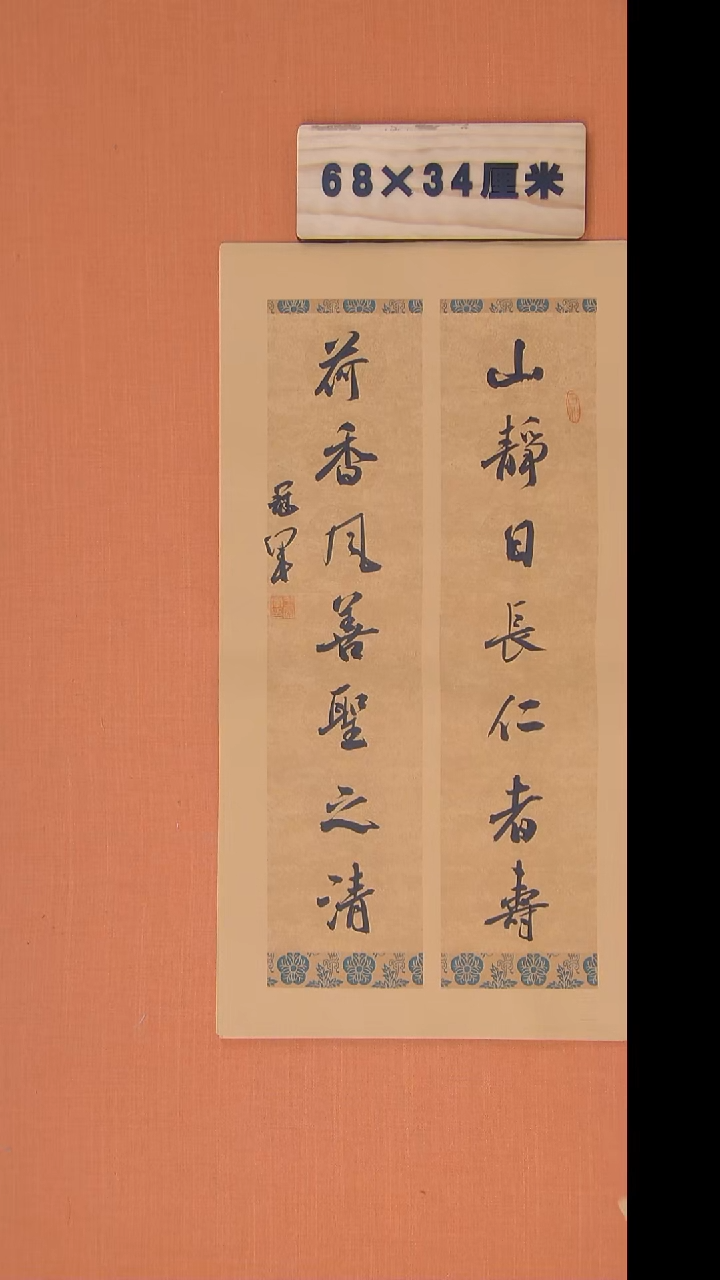 68×34厘米
山靜日長仁者壽
荷香風善聖之清